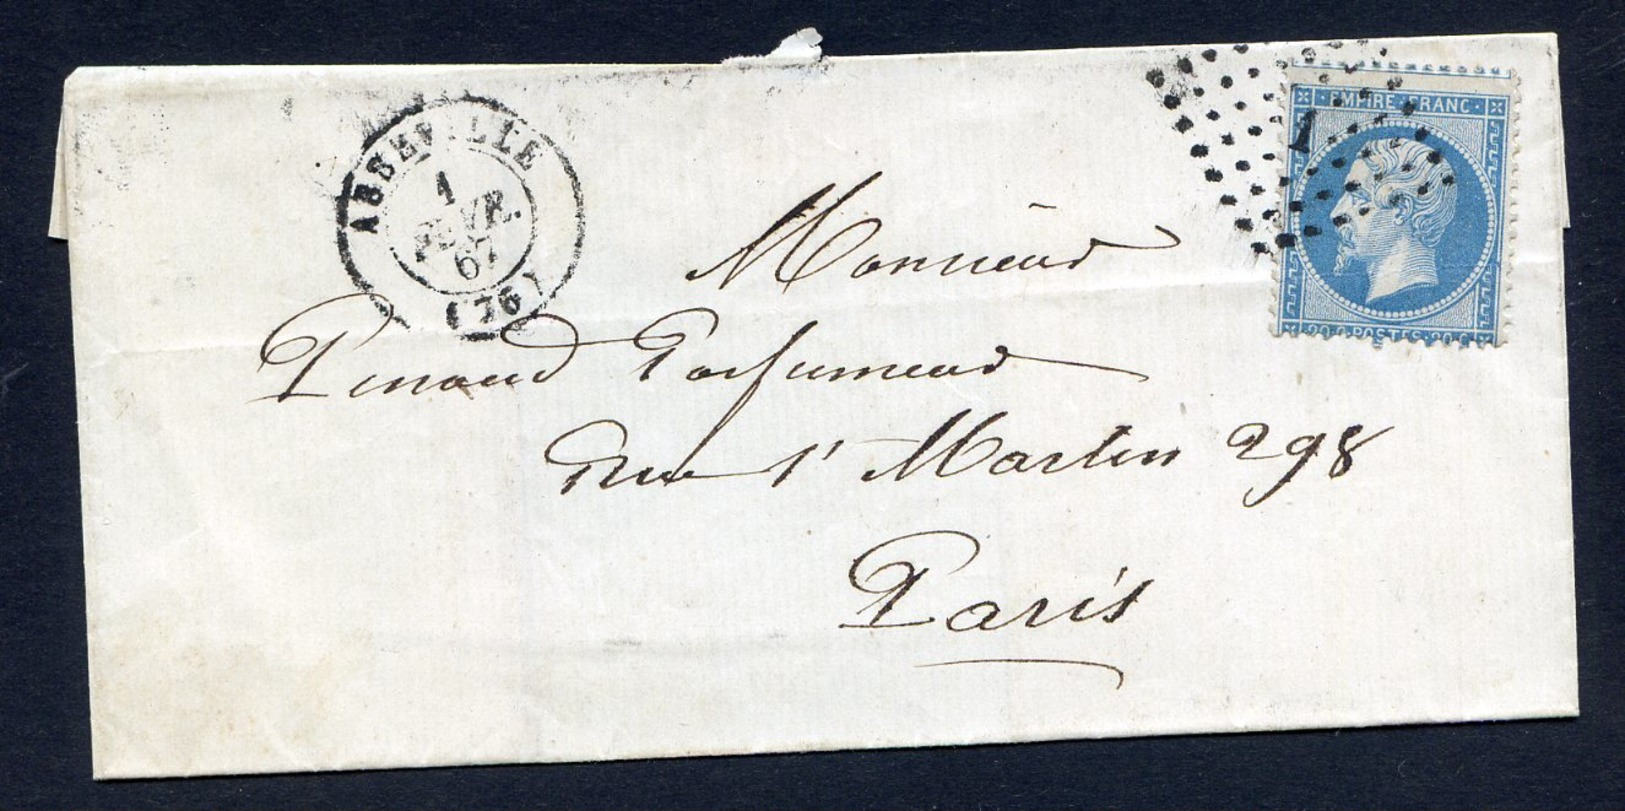 ABBEVILLE
1
FEVR.
67
(76)
EMPIRE FRANC
1
20 C POSTES 20 C
Monsieur
Pinaud Parfumeur
Rue St Martin 298
Paris